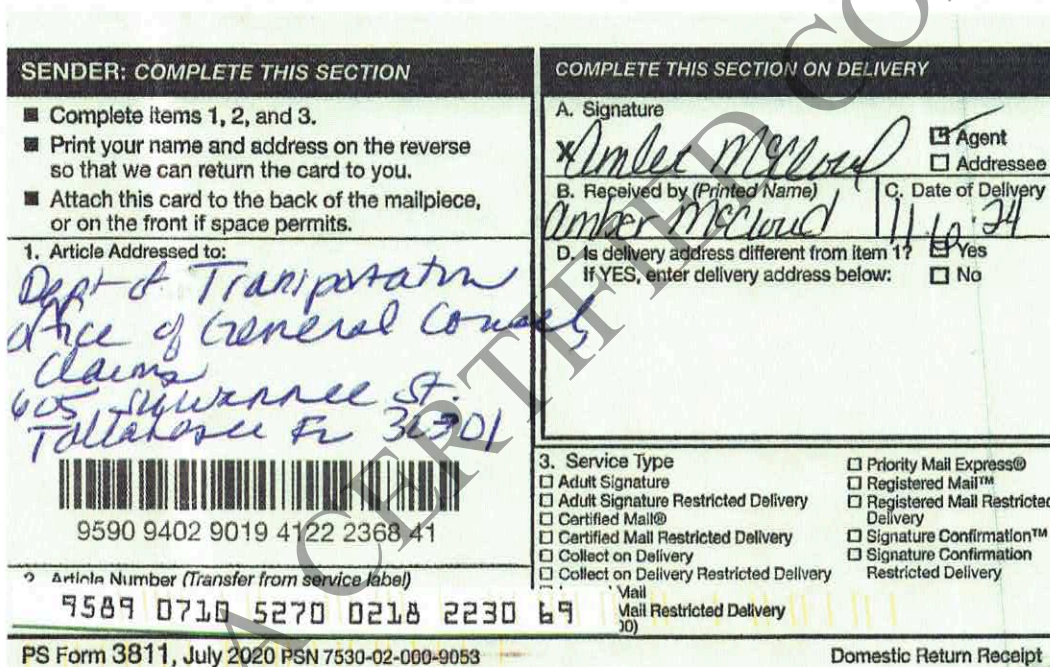 SENDER: COMPLETE THIS SECTION
■ Complete items 1, 2, and 3.
■ Print your name and address on the reverse
so that we can return the card to you.
■ Attach this card to the back of the mailpiece,
or on the front if space permits.
1. Article Addressed to:
Dept of Transportation
Office of General Counsel,
Claims
605 Suwannee St.
Tallahassee FL 32301
9590 9402 9019 4122 2368 41
2. Article Number (Transfer from service label)
9589 0710 5270 0218 2230 69
COMPLETE THIS SECTION ON DELIVERY
A. Signature
X Amber McCloud
☑ Agent
☐ Addressee
B. Received by (Printed Name)
Amber McCloud
C. Date of Delivery
11.6.24
D. Is delivery address different from item 1? ☐ Yes
If YES, enter delivery address below: ☐ No
3. Service Type
☐ Adult Signature
☐ Adult Signature Restricted Delivery
☐ Certified Mail®
☐ Certified Mail Restricted Delivery
☐ Collect on Delivery
☐ Collect on Delivery Restricted Delivery
Mail
Mail Restricted Delivery
00)
☐ Priority Mail Express®
☐ Registered Mail™
☐ Registered Mail Restricted
Delivery
☐ Signature Confirmation™
☐ Signature Confirmation
Restricted Delivery
PS Form 3811, July 2020 PSN 7530-02-000-9053
Domestic Return Receipt
A CERTIFIED CO